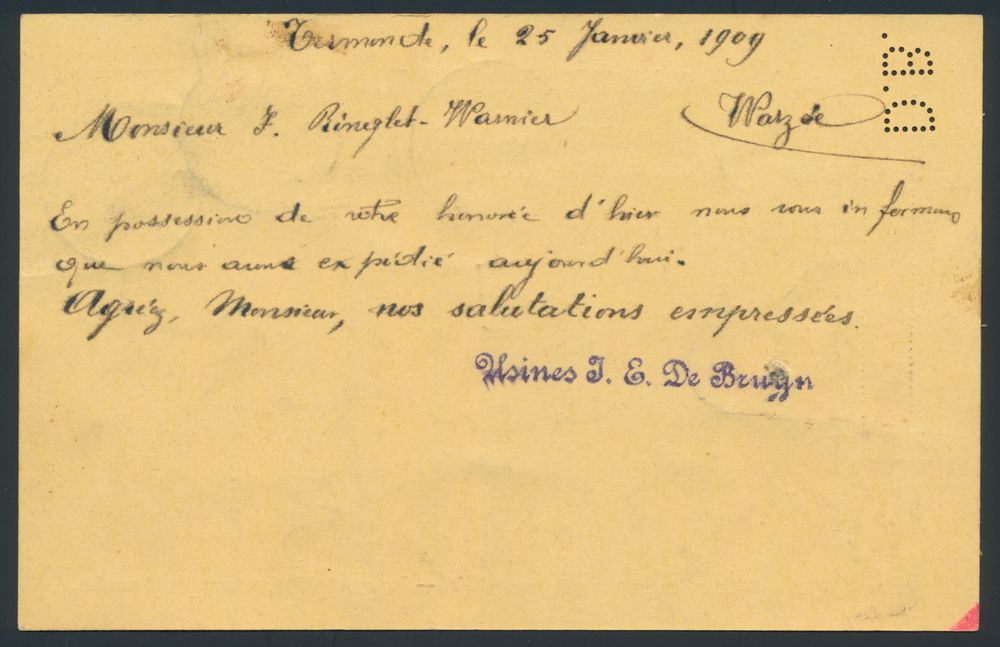 Termonde, le 25 Janvier, 1909
D.B.
Monsieur J. Binglet-Warnier Warzée
En possession de votre honorée d'hier nous vous informons
que nous avons expédié aujourd'hui.
Agréez, Monsieur, nos salutations empressées.
Usines J. E. De Bruyn